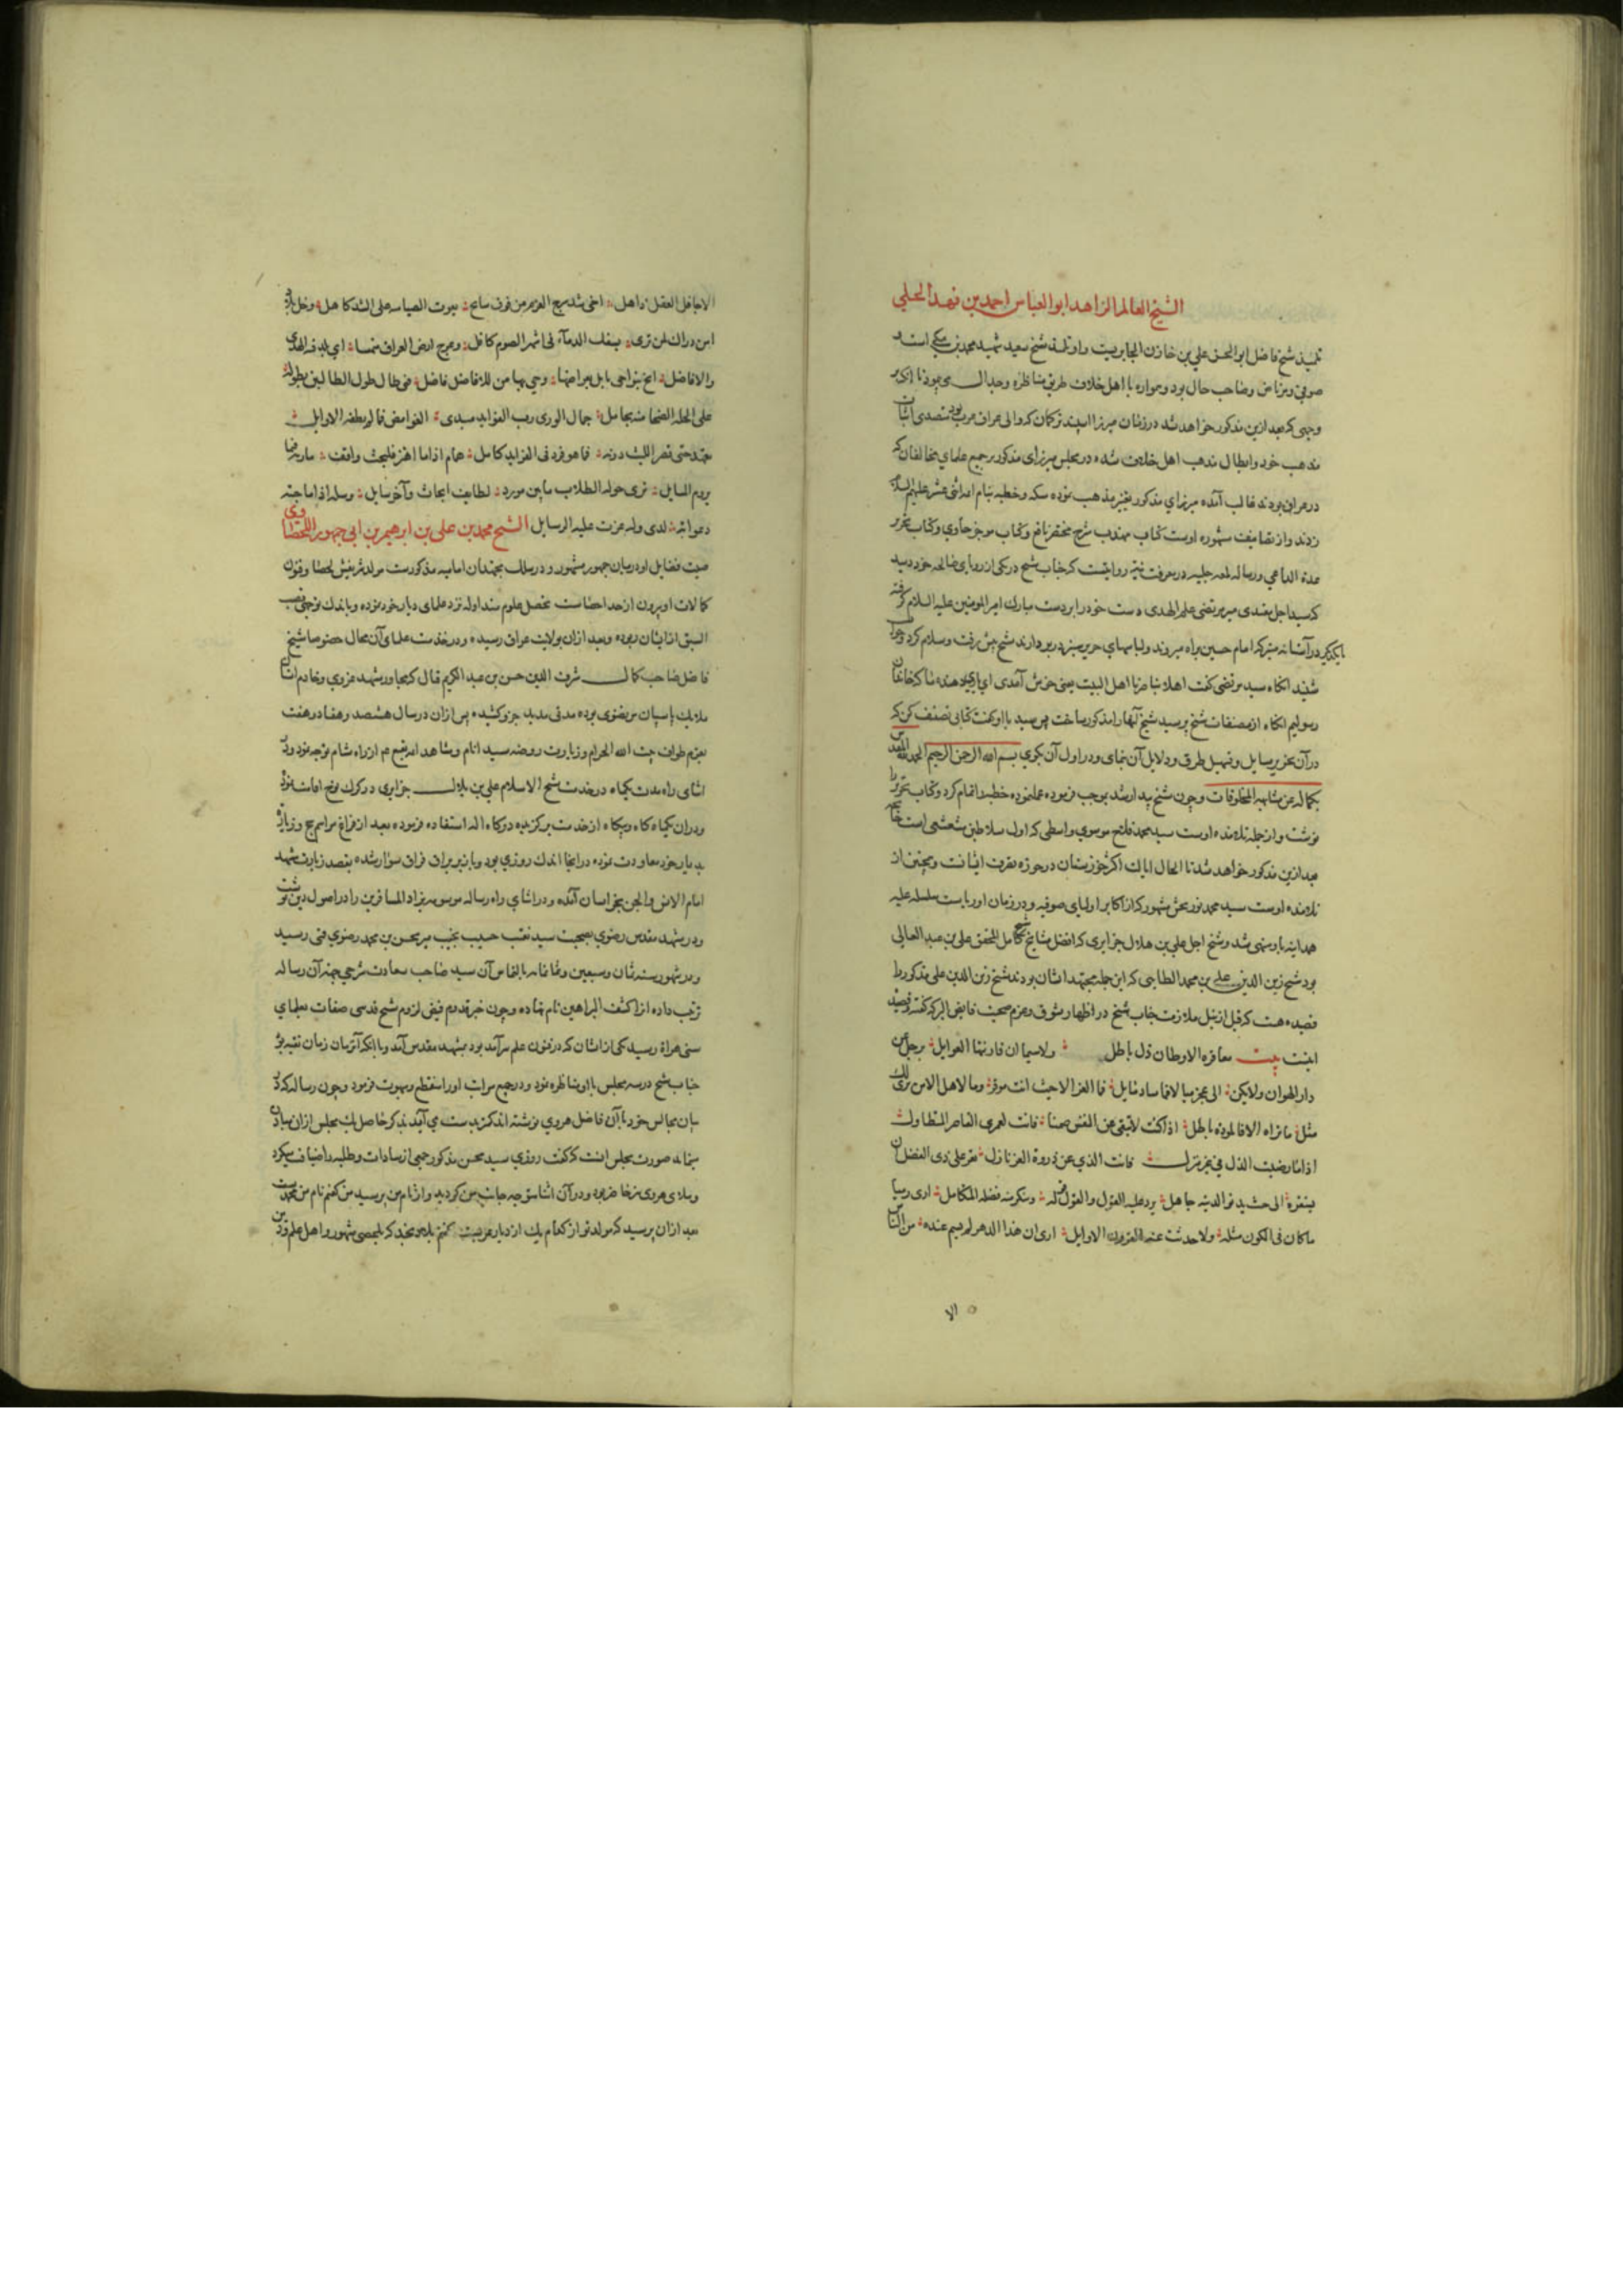 الشیخ العالم الزاهد ابو العباس احمد بن فهد الحلي
تلمیذ شیخ فاضل ابوالحسن علي بن خازن الحایریست واو تلمیذ شیخ سعید شهید محمد بن مکی است و
صوفی و مرتاض وصاحب حال بود و همواره با اهل خلاف طریق مناظره وجدال می پیمود تا انکه بر
وجهی که بعد ازین مذکور خواهد شد در زمان میرزا اسپند ترکمان که والی عراق عرب بود متصدی اثبات
مذهب خود وابطال مذهب اهل خلاف شده در مجلس میرزای مذکور بر جمیع علمای مخالفان که
در عراق بودند غالب آمده میرزاي مذکور تغییر مذهب نموده سکه وخطبه بنام امه اثنی عشر علیهم السلام
زدند واز تصانیف مشهوره اوست کتاب مهذب شرح مختصر نافع وکتاب موجز حاوي وکتاب تحریر
عدة الداعي ورساله لمعه جلیه در معرفت نیه روایتست که جناب شیخ در یکی از رویای صالحه خود دید
که سید اجل مقتدی میر مرتضی علم الهدی دست خود را بر دست مبارک امیر المومنین علیه السلام گرفته
با یکدیگر در آستانه متبرکه امام حسین براه میروند ولباسهاي حریر سبز در بر دارند شیخ پیش رفت وسلام کرد وجواب
شنید انکاه سید مرتضی گفت اهلا بناصرنا اهل البیت یعنی خوش آمدی اي یاری دهنده ما که خاندان
رسولیم انکاه از مصنفات شیخ پرسید شیخ آنها را مذکور ساخت پس سید با او گفت کتابی تصنیف کن که
در آن تحریر مسایل وتسهیل طرق ودلایل آن نمای ودر اول آن بگوي بسم الله الرحمن الرحیم الحمد لله المقدس
بکماله عن مشابهه المخلوقات وچون شیخ بیدار شد بموجب فرموده عمل نموده خطبه را تمام کرد وکتاب تحریر را
نوشت واز جمله تلامذه اوست سید محمد فلاح موسوي واسطی که اول سلاطین مشعشعی است چنانچه
بعد ازین مذکور خواهد شد تا الحال ایالت اکثر خوزستان در حوزه تصرف ایشانست وهمچنین از
تلامذه اوست سید محمد نوربخش مشهور که از اکابر اولیای صوفیه و در زمان او ریاست سلسله علیه
همدانیه باو منهی شد وشیخ اجل علي بن هلال جزایری که افضل مشایخ شیخ کامل المحقق علي بن عبد العالی
بود شیخ زین الدین علي بن محمد الطایی که ازین جمله مجتهد ایشان بودند شیخ زین الدین علي مذکور را
قصیده هست که قبل از نیل ملازمت جناب شیخ در اظهار شوق وعزم صحبت فایض البرکه گفته وقصیده
اینست بیت معاقره الاوطان ذل باطل ولاسیما ان قارنتها الغوایل برحل عن
دار الهوان ولا یکن الی عجز میلا لاقامه مایل فما العز الا حیث انت موقر وما لاهل الا من رای لک
مثل ما تراه والا فالموده باطل اذا کنت لا تبقی عن النفس ضمنا فانت لعمری القاصر المتطاول
اذا ما رضیت الذل في غیر منزل فانت الذي عن ذروة العز نازل عز علی ذی الفضل ان
یستفزه الی حسد یدنوالدنیه جاهل یرد علیه القول والقول قوله وینکر منه فضله المتکامل اری رمیا
ماکان فی الکون مثله ولا حدثت عنه القرون الاوایل اری ان هذا الدهر لم یسم عنده من الناس
الا
الا جاهل العقل ذاهل اخی شد سرج العزم من فوق سابح بیوت الصیاسه علی الشد کاهل وخل
این دران لن تری یسفک الدماء فی اشهر الصوم کافل وعرج ارض العراق تیمما اي بلد فیه الهدی
والافاضل انخ بنواحی بابل بعراصها وحي بها من للافاضل فاضل فی طال طول الطالبین بطوله
علی الحله الفیحاء جمال الوری رب الفواید سیدی الغوامض فالم یطقه الاوایل
مجد حتی قصر اللیث دونه فها هو فرد فی الفراید کامل همام اذا ما اهتز فلیجث واقف
بروم المسایل تری حوله الطلاب مابین مورد لطایف ابحاث وآخر سایل وسله اذا ماجئته
لدی وله عزت علیه الرسایل الشیخ محمد بن علی بن ابرهیم بن ابی جمهور اللحصاوی
صیت فضایل او در میان جمهور مشهور و در سلک مجتهدان امامیه مذکورست مولد شریفش لحصا وفنون
کمالات او بیرون از حد احصاست تحصیل علوم متداوله نزد علمای دیار خود نموده وباندک توجهی قصب
السبق از ایشان ربوده وبعد ازان بولایت عراق رسیده ودر خدمت علمای آن محال خصوصا شیخ
فاضل صاحب کمال شرف الدین حسن بن عبد الکریم فتال که مجاور مشهد غروي وخادم استان
ملایک پاسبان مرتضوی بوده مدتی مدید جزو کشیده پس ازان در سال هشصد وهفتاد وهفت
بعزم طواف بیت الله الحرام وزیارت روضه سید انام ومشاهد ایمه بقیع ع م از راه شام توجه نمود ودر
اثنای راه مدت یکماه در خدمت شیخ الاسلام علي بن هلال جزایری در کرک نوح اقامت نموده
ودران یکماه گاه وبیگاه از خدمت برگزیده درگاه اله استفاده فرموده بعد از فراغ مراسم حج وزیارت
بدیار خود معاودت نموده در انجا اندک روزي بود وباز بر براق فراق سوار شده بقصد زیارت مشهد
امام الانس والجن بخراسان آمده ودر اثنای راه رساله موسومه بزاد المسافرین را در اصول دین نوشت
ودر مشهد مقدس رضوي بصحبت سید نقیب حسیب نجیب میر محسن بن محمد رضوي قمی رسید
ودر شهور سنه ثمان وسبعین وثمانمایه بالتماس آن سید صاحب سعادت شرحي جهة آن رساله
ترتیب داده انرا کشف البراهین نام نهاده وچون خبر قدوم فیض لزوم شیخ قدسی صفات بعلماي
سنی هراة رسید یکی از ایشان که در فنون علم سرآمد بود بمشهد مقدس آمد وبا آنکه آنزمان زمان تقیه بود
جناب شیخ در سه مجلس با او مناظره نمود ودر جمیع مراتب او را منقطع ومبهوت فرمود وچون رساله که در
بیان مجالس خود با آن فاضل هروي نوشته اند کمتر بدست مي آید بذکر حاصل یک مجلس ازان مبادرت
مینماید صورت مجلس اینست که گفت روزي سید محسن مذکور جمعی از سادات وطلبه را ضیافت میکرد
وملای هروی نیز حاضر بود ودر آن اثنا متوجه جانب من گردید واز نام من پرسید من گفتم نام من محمدست
بعد ازان پرسید که مولد تو از کدام یک از دیار عربست گفتم بلد هجر که بلحصی مشهور واهل علم ودین